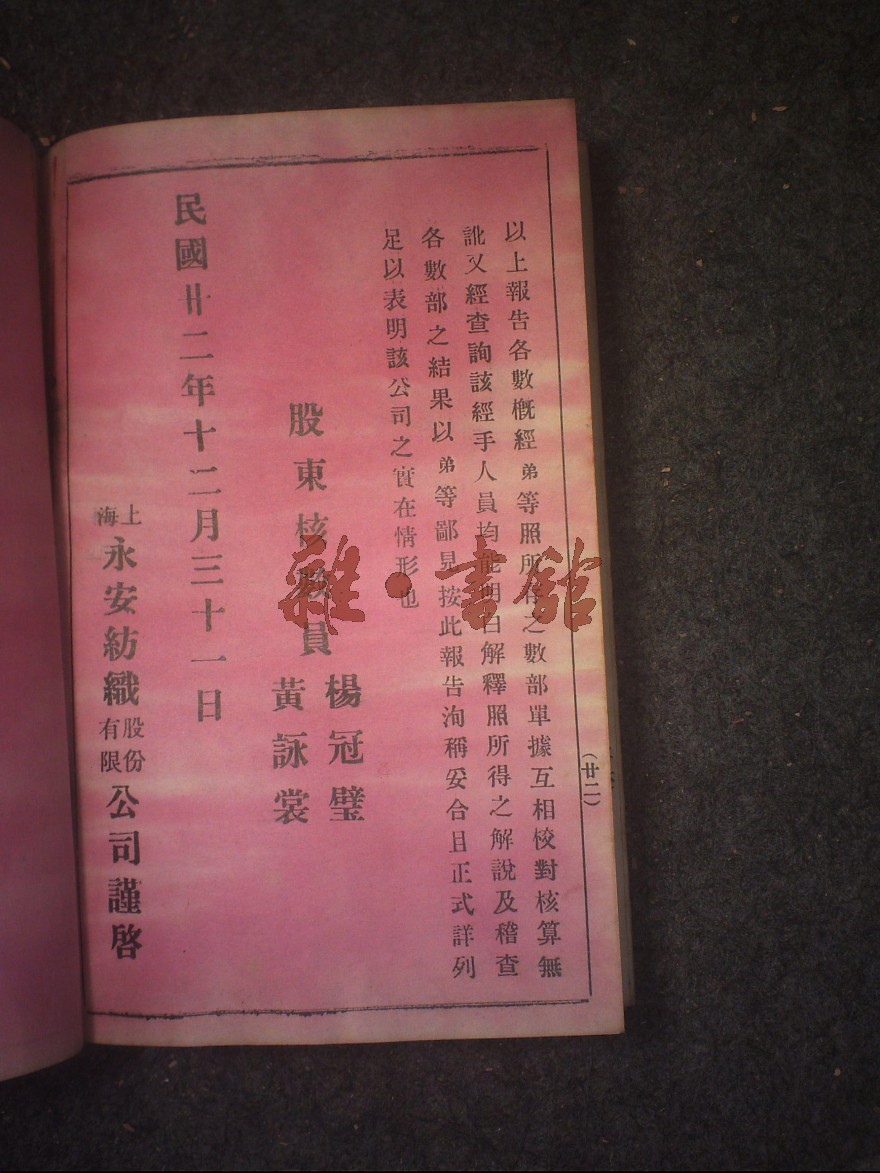 以上報告各數概經弟等照所存之數部單據互相校對核算無
訛又經查詢該經手人員均能明白解釋照所得之解說及稽查
各數部之結果以弟等鄙見按此報告洵稱妥合且正式詳列
足以表明該公司之實在情形也
股東核數員
楊冠璧
黃詠裳
民國廿二年十二月三十一日
上海永安紡織股份有限公司謹啓
(廿二)
雜·書館